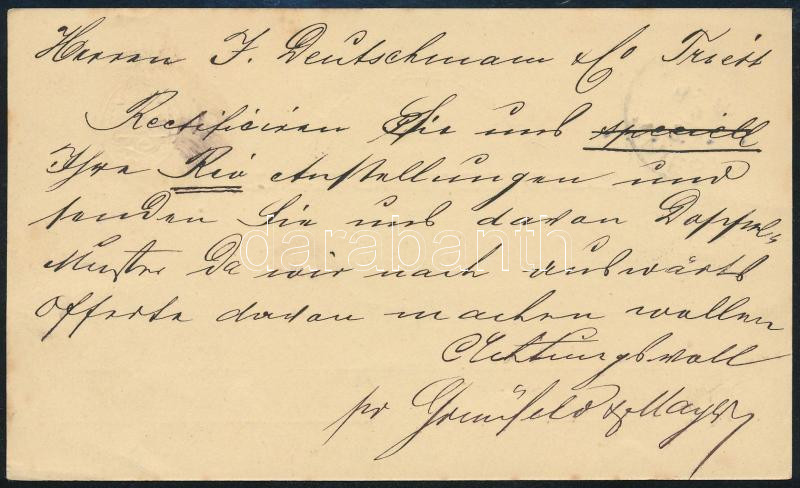 Herren J. Deutschmann & Co Triest
Rectificiren Sie uns speciell
Ihre Rio Anstellungen und
senden Sie uns davon Doppel-
Muster da wir nach auswärts
Offerte davon machen wollen
Achtungsvoll
pr Grünfeld & Mayer
darabanth